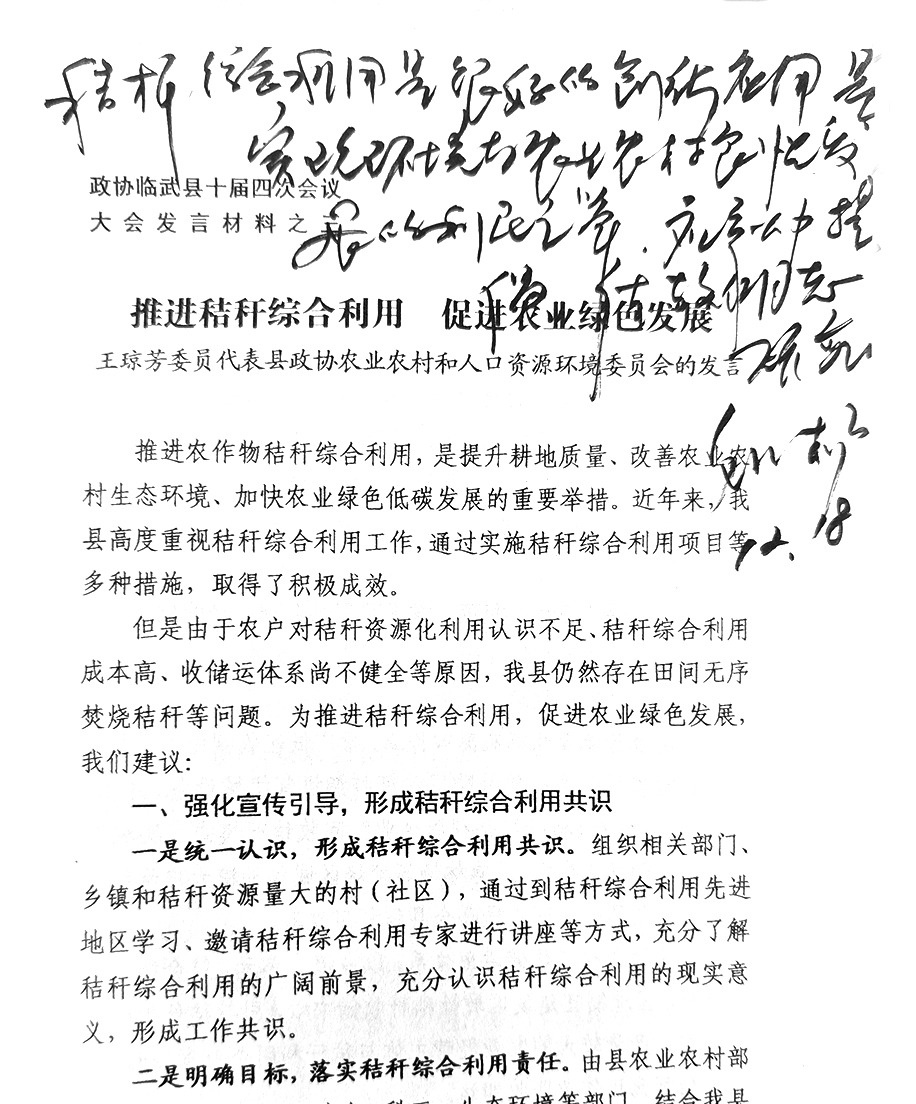 秸秆综合利用是很好的创新应用是
实现环境与农业农村
展的利民之举
同志
研究
12.18
政协临武县十届四次会议
大会发言材料之
推进秸秆综合利用 促进农业绿色发展
王琼芳委员代表县政协农业农村和人口资源环境委员会的发言
推进农作物秸秆综合利用，是提升耕地质量、改善农业农
村生态环境、加快农业绿色低碳发展的重要举措。近年来，我
县高度重视秸秆综合利用工作，通过实施秸秆综合利用项目等
多种措施，取得了积极成效。
但是由于农户对秸秆资源化利用认识不足、秸秆综合利用
成本高、收储运体系尚不健全等原因，我县仍然存在田间无序
焚烧秸秆等问题。为推进秸秆综合利用，促进农业绿色发展，
我们建议：
一、强化宣传引导，形成秸秆综合利用共识
一是统一认识，形成秸秆综合利用共识。组织相关部门、
乡镇和秸秆资源量大的村（社区），通过到秸秆综合利用先进
地区学习、邀请秸秆综合利用专家进行讲座等方式，充分了解
秸秆综合利用的广阔前景，充分认识秸秆综合利用的现实意
义，形成工作共识。
二是明确目标，落实秸秆综合利用责任。由县农业农村部
生态环境等部门，结合我县